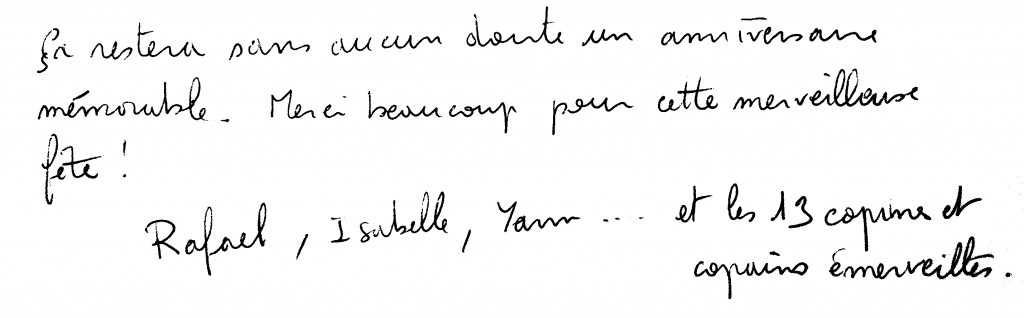 Ça restera sans aucun doute un anniversaire
mémorable. Merci beaucoup pour cette merveilleuse
fête !
Rafael, Isabelle, Yann ... et les 13 copines et
copains émerveillés.